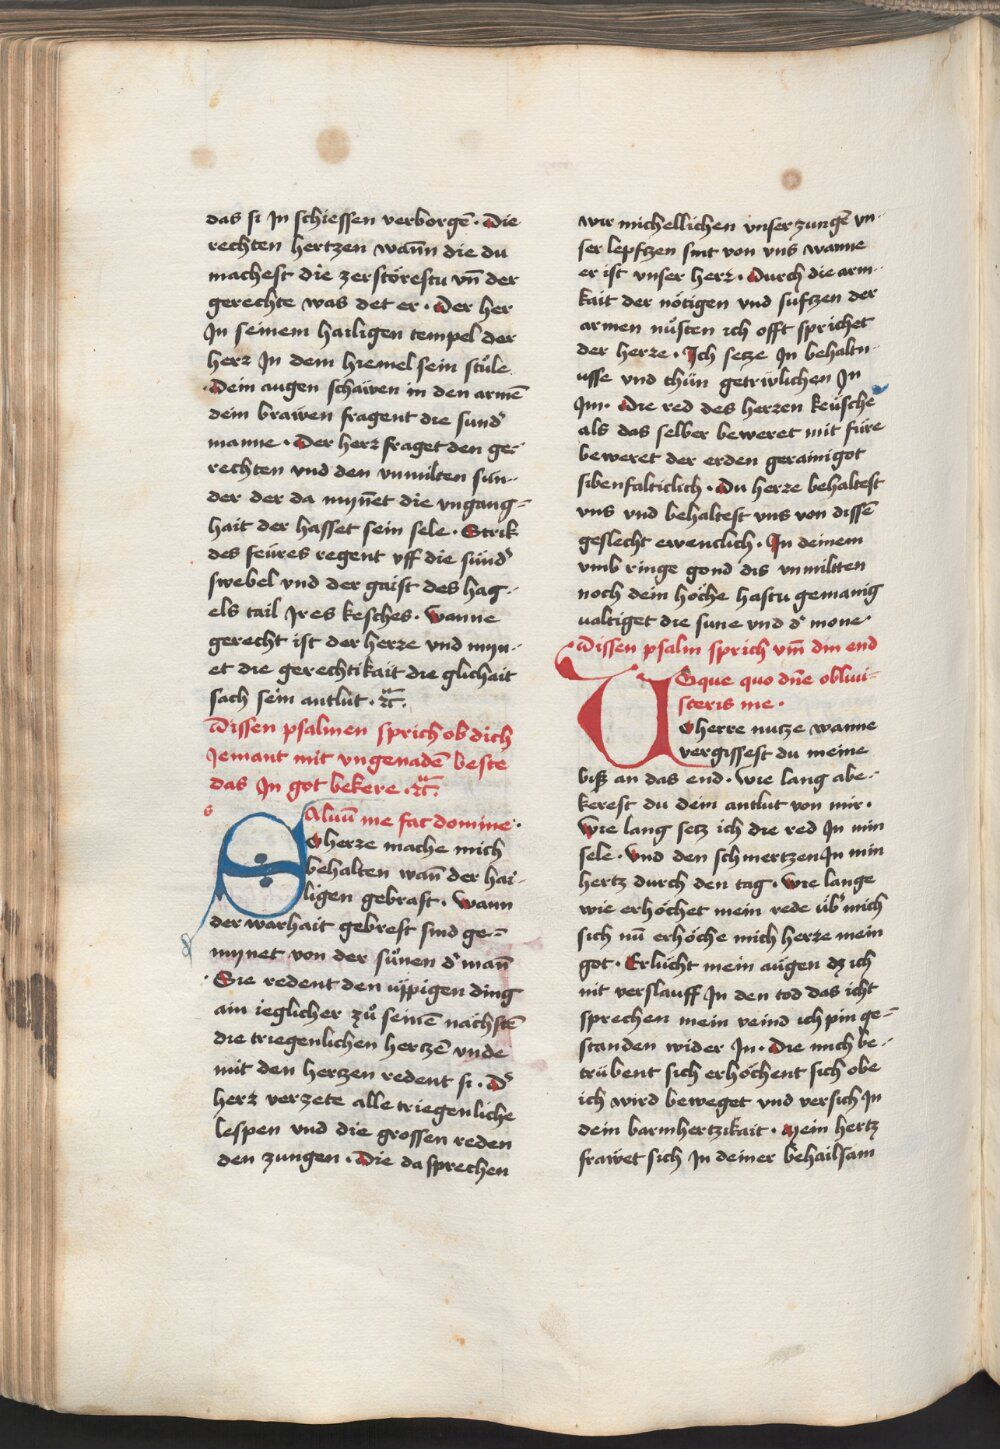 das si Jn schiessen verborgē · Die
rechten hertzen wañn die du
machest die zerstörestu vñ der
gerechte was det er · Der her
Jn seinem hailigen tempel der
herr Jn dem hiemel sein stůle
· Dein augen schäwen in den armē
dein brawen fragent die sund͛
manne · Der herr fraget den ge-
rechten vnd den vnmilten sün-
der der da mynēt die vngang-
hait der hasset sein sele · Strik
des feüres regent vff die sünd͛
swebel vnd der gaist des hag-
els tail Jres kesches · Wanne
gerecht ist der herre vnd myn-
et die gerechtikait die glichait
sach sein antlüt · ꝛc̄ ·
Dissen psalmen sprich ob dich
Jemant mit vngenadē beste
das Jn got bekere · ꝛc̄
s
Saluū me fac domine ·
O herre mache mich
behalten wañ der hai-
ligen gebrast · Wann
der warhait gebrest sind ge-
mynet von der sünen d͛ mañ
· Sie redent den üppigen ding
ain ieglicher zů seinē nächstē
die triegenlichen hertzē vnde
mit den hertzen redent si · D͛
herr verzete alle triegenliche
lespen vnd die grossen reden
den zungen · Die da sprechen
wir michellichen vnser zungē vn-
ser lepftzen sint von vns wanne
er ist vnser herr · Durch die arm-
kait der nötigen vnd süftzen der
armen nüsten ich offt sprichet
der herre · Ich setze Jn behaltn-
usse vnd thün getriwlichen Jn
Jm · Die red des herren keüsche
als das selber beweret mit füre
beweret der erden gerainigot
sibenfalticlich · Du herre behaltest
vns vnd behaltest vns von dissē
geslecht ewenclich · Jn deinem
vmb ringe gond dis vnmiltten
noch dein höche hastu gemanig
ualtiget die sune vnd d͛ mone
Dissen psalm sprich vm̄ din end
Usque quo dn̄e obliui-
sceris me ·
O herre nutze wanne
vergissest du meine
biß an das end · Wie lang abe-
kerest du dein antlut von mir ·
Wie lang setz ich die red Jn min
sele · Vnd den schmertzen Jn min
hertz durch den tag · Wie lange
wie erhöchet mein rede üb͛ mich
sich nū erhöche mich herre mein
got · Erlücht mein augen dz ich
nit verslauff Jn den tod das icht
sprechen mein veind ich pin ge-
standen wider Jn · Die mich be-
trübent sich erhöchent sich obe
ich wird beweget vnd versich Jn
dein barmhertzikait · Mein hertz
fräwet sich Jn deiner behailsam